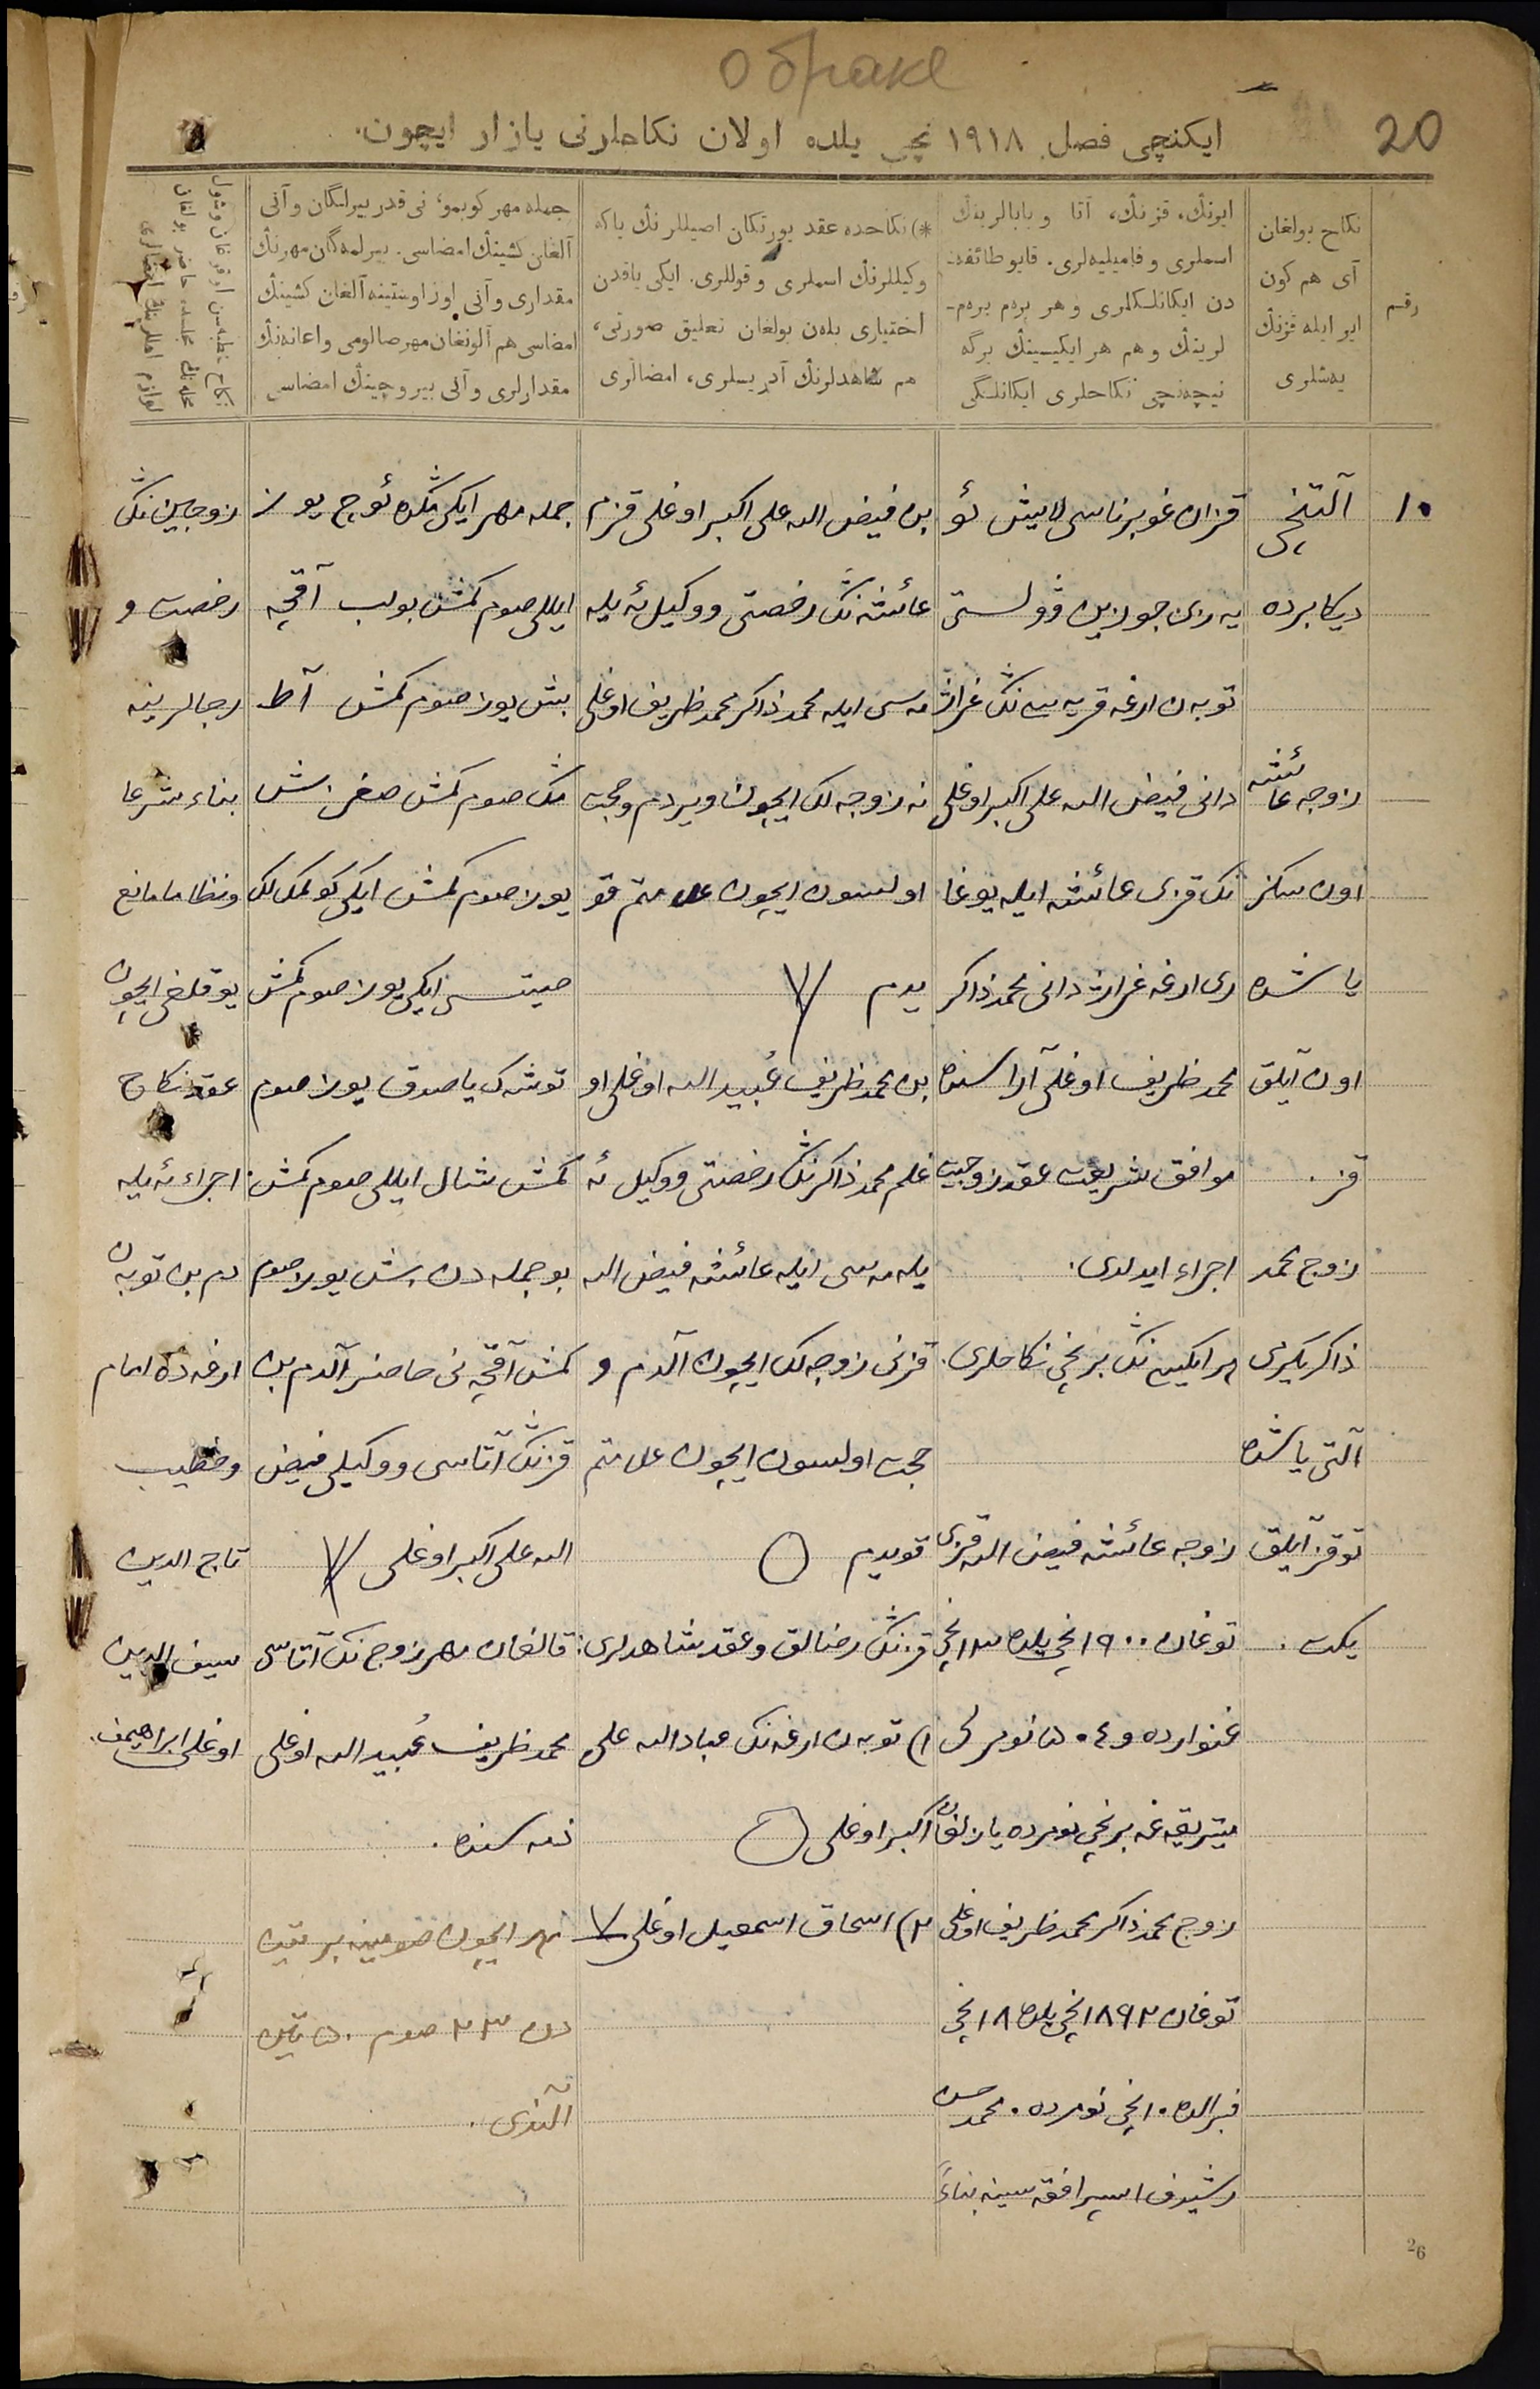 о браке
20
ایكنچی فصل ١٩١٨ نچی یلده اولان نكاحلرنی یازار ایچون.
رقم
نكاح بولغان
آی هم كون
ایر ایله قزنڭ
یه‌شلری
ایرنڭ، قزنڭ، آتا و بابالرینڭ
اسملری و فامیلیه‌لری. قایو طائفه‌
دن ایكانلكلری و هر برم برم-
لرینڭ و هم هر ایكیسینڭ برگه
نیچه‌نچی نكاحلری ایكانلگی
*) نكاحده عقد یورتكان اصیللرنڭ یاكه
وكیللرنڭ اسملری و قوللری. ایكی یاقدن
اختیاری بله‌ن بولغان تعلیق صورتی،
هم شاهدلرنڭ آدریسلری، امضالری
جمله مهر كوبمو، نی قدر بیرلگان و آنی
آلغان كشینڭ امضاسی. بیرلمه‌گان مهرنڭ
مقداری و آنی اوز اوستینه آلغان كشینڭ
امضاسی هم آلونغان مهر صالومی و اعانه‌نڭ
مقدارلری و آنی بیروچینڭ امضاسی
١٠
آلتنچی
دیكابرده
زوجه عائشه
اون سكز
یاشده
اون آیلق
قز.
زوج محمد
ذاكر یكرمی
آلتی یاشده
توقز آیلق
یكت.
قزان غوبرناسی لایش ئو
یه‌زی جوریین ڤولستی
توبه‌ن ارغه قریه سی نڭ غراژ
دانی فیض الله علی اكبر اوغلی
نڭ قزی عائشه ایله یوغا
ری ارغه غراژدانی محمد ذاكر
محمد ظریف اوغلی آراسنده
موافق شریعت عقد زوجیت
اجراء ایدلدی.
هر ایكیسی نڭ برنچی نكاحلری.
زوجه عائشه فیض الله قزی
توغان ١٩٠٠ نچی یلده ١٣ نچی
غنوارده و ٤٠ نومرلی
میتریقه‌غه برنچی نومرده یازلغان
زوج محمد ذاكر محمد ظریف اوغلی
توغان ١٨٩٢ نچی یلده ١٨ نچی
فبرالده ١٠ نچی نومرده. محمد حسن
رشیدف اسپرافقه سینه بناءً
بن فیض الله علی اكبر اوغلی قزم
عائشه نڭ رخصتی و وكیل ئه‌یله
مه‌سی ایله محمد ذاكر محمد ظریف اوغلی
نه زوجه لك ایچون ویردم و حجت
اولسون ایچون علامتم قو
یدم
بن محمد ظریف عُبیدالله اوغلی او
غلم محمد ذاكرنڭ رخصتی و وكیل ئه
یله‌مه‌سی ایله عائشه فیض الله
قزنی زوجه لك ایچون آلدم و
حجت اولسون ایچون علامتم
قویدم
قزنڭ رضالق و عقد شاهدلری:
١) توبه‌ن ارغه‌نڭ عبادالله علی
اكبر اوغلی
٢) اسحاق اسمعیل اوغلی
جمله مهر ایكی مڭده ئوچ یوز
ایللی صوم كمش بولب آقچه
بش یوز صوم كمش آط
مڭ صوم كمش صغر بش
یوز صوم كمش ایكی كولمك لك
صیتسی ایكی یوز صوم كمش
توشه‌ك یاصدق یوز صوم
كمش شال ایللی صوم كمش:
بو جمله دن بش یوز صوم
كمش آقچه نی حاضر آلدم بن
قزنڭ آتاسی و وكیلی فیض
الله علی اكبر اوغلی
قالغان مهر زوج نڭ آتاسی
محمد ظریف عُبیدالله اوغلی
ذمه سنده.
مهر ایچون صومینه بر تین
دن ٢٣ صوم ٥٠ تین
آلندی.
زوجین نڭ
رخصت و
رجالرینه
بناء شرعا
و نظاما مانع
یوقلغی ایچون
عقد نكاح
اجراء ئه‌یله
دم بن توبه‌ن
ارغه ده امام
و خطیب
تاج الدین
سیف الدین
اوغلی ابراهیمف.
26